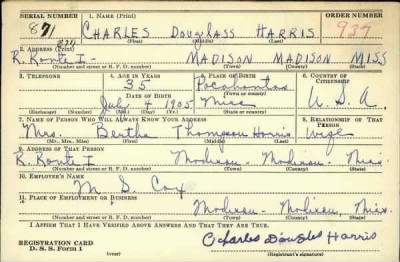 SERIAL NUMBER 1. NAME (Print) ORDER NUMBER
871 CHARLES Douglass HARRIS 937
(First) (Middle) (Last)
2. ADDRESS (Print)
R. Route I - MADISON MADISON MISS
(Number and street or R. F. D. number) (Town) (County) (State)
3. TELEPHONE 4. AGE IN YEARS 5. PLACE OF BIRTH 6. COUNTRY OF CITIZENSHIP
35 Pocahontas
DATE OF BIRTH (Town or county)
July 4 1905 Miss U. S. A.
(Exchange) (Number) (Mo.) (Day) (Yr.) (State or country)
7. NAME OF PERSON WHO WILL ALWAYS KNOW YOUR ADDRESS 8. RELATIONSHIP OF THAT PERSON
Mrs. Bertha Thompson Harris Wife
(Mr., Mrs., Miss) (First) (Middle) (Last)
9. ADDRESS OF THAT PERSON
R. Route I Madison - Madison - Miss.
(Number and street or R. F. D. number) (Town) (County) (State)
10. EMPLOYER'S NAME
M. S. Cox
11. PLACE OF EMPLOYMENT OR BUSINESS
Madison - Madison, Miss.
(Number and street or R. F. D. number) (Town) (County) (State)
I AFFIRM THAT I HAVE VERIFIED ABOVE ANSWERS AND THAT THEY ARE TRUE.
REGISTRATION CARD
D. S. S. Form 1 Charles Douglas Harris